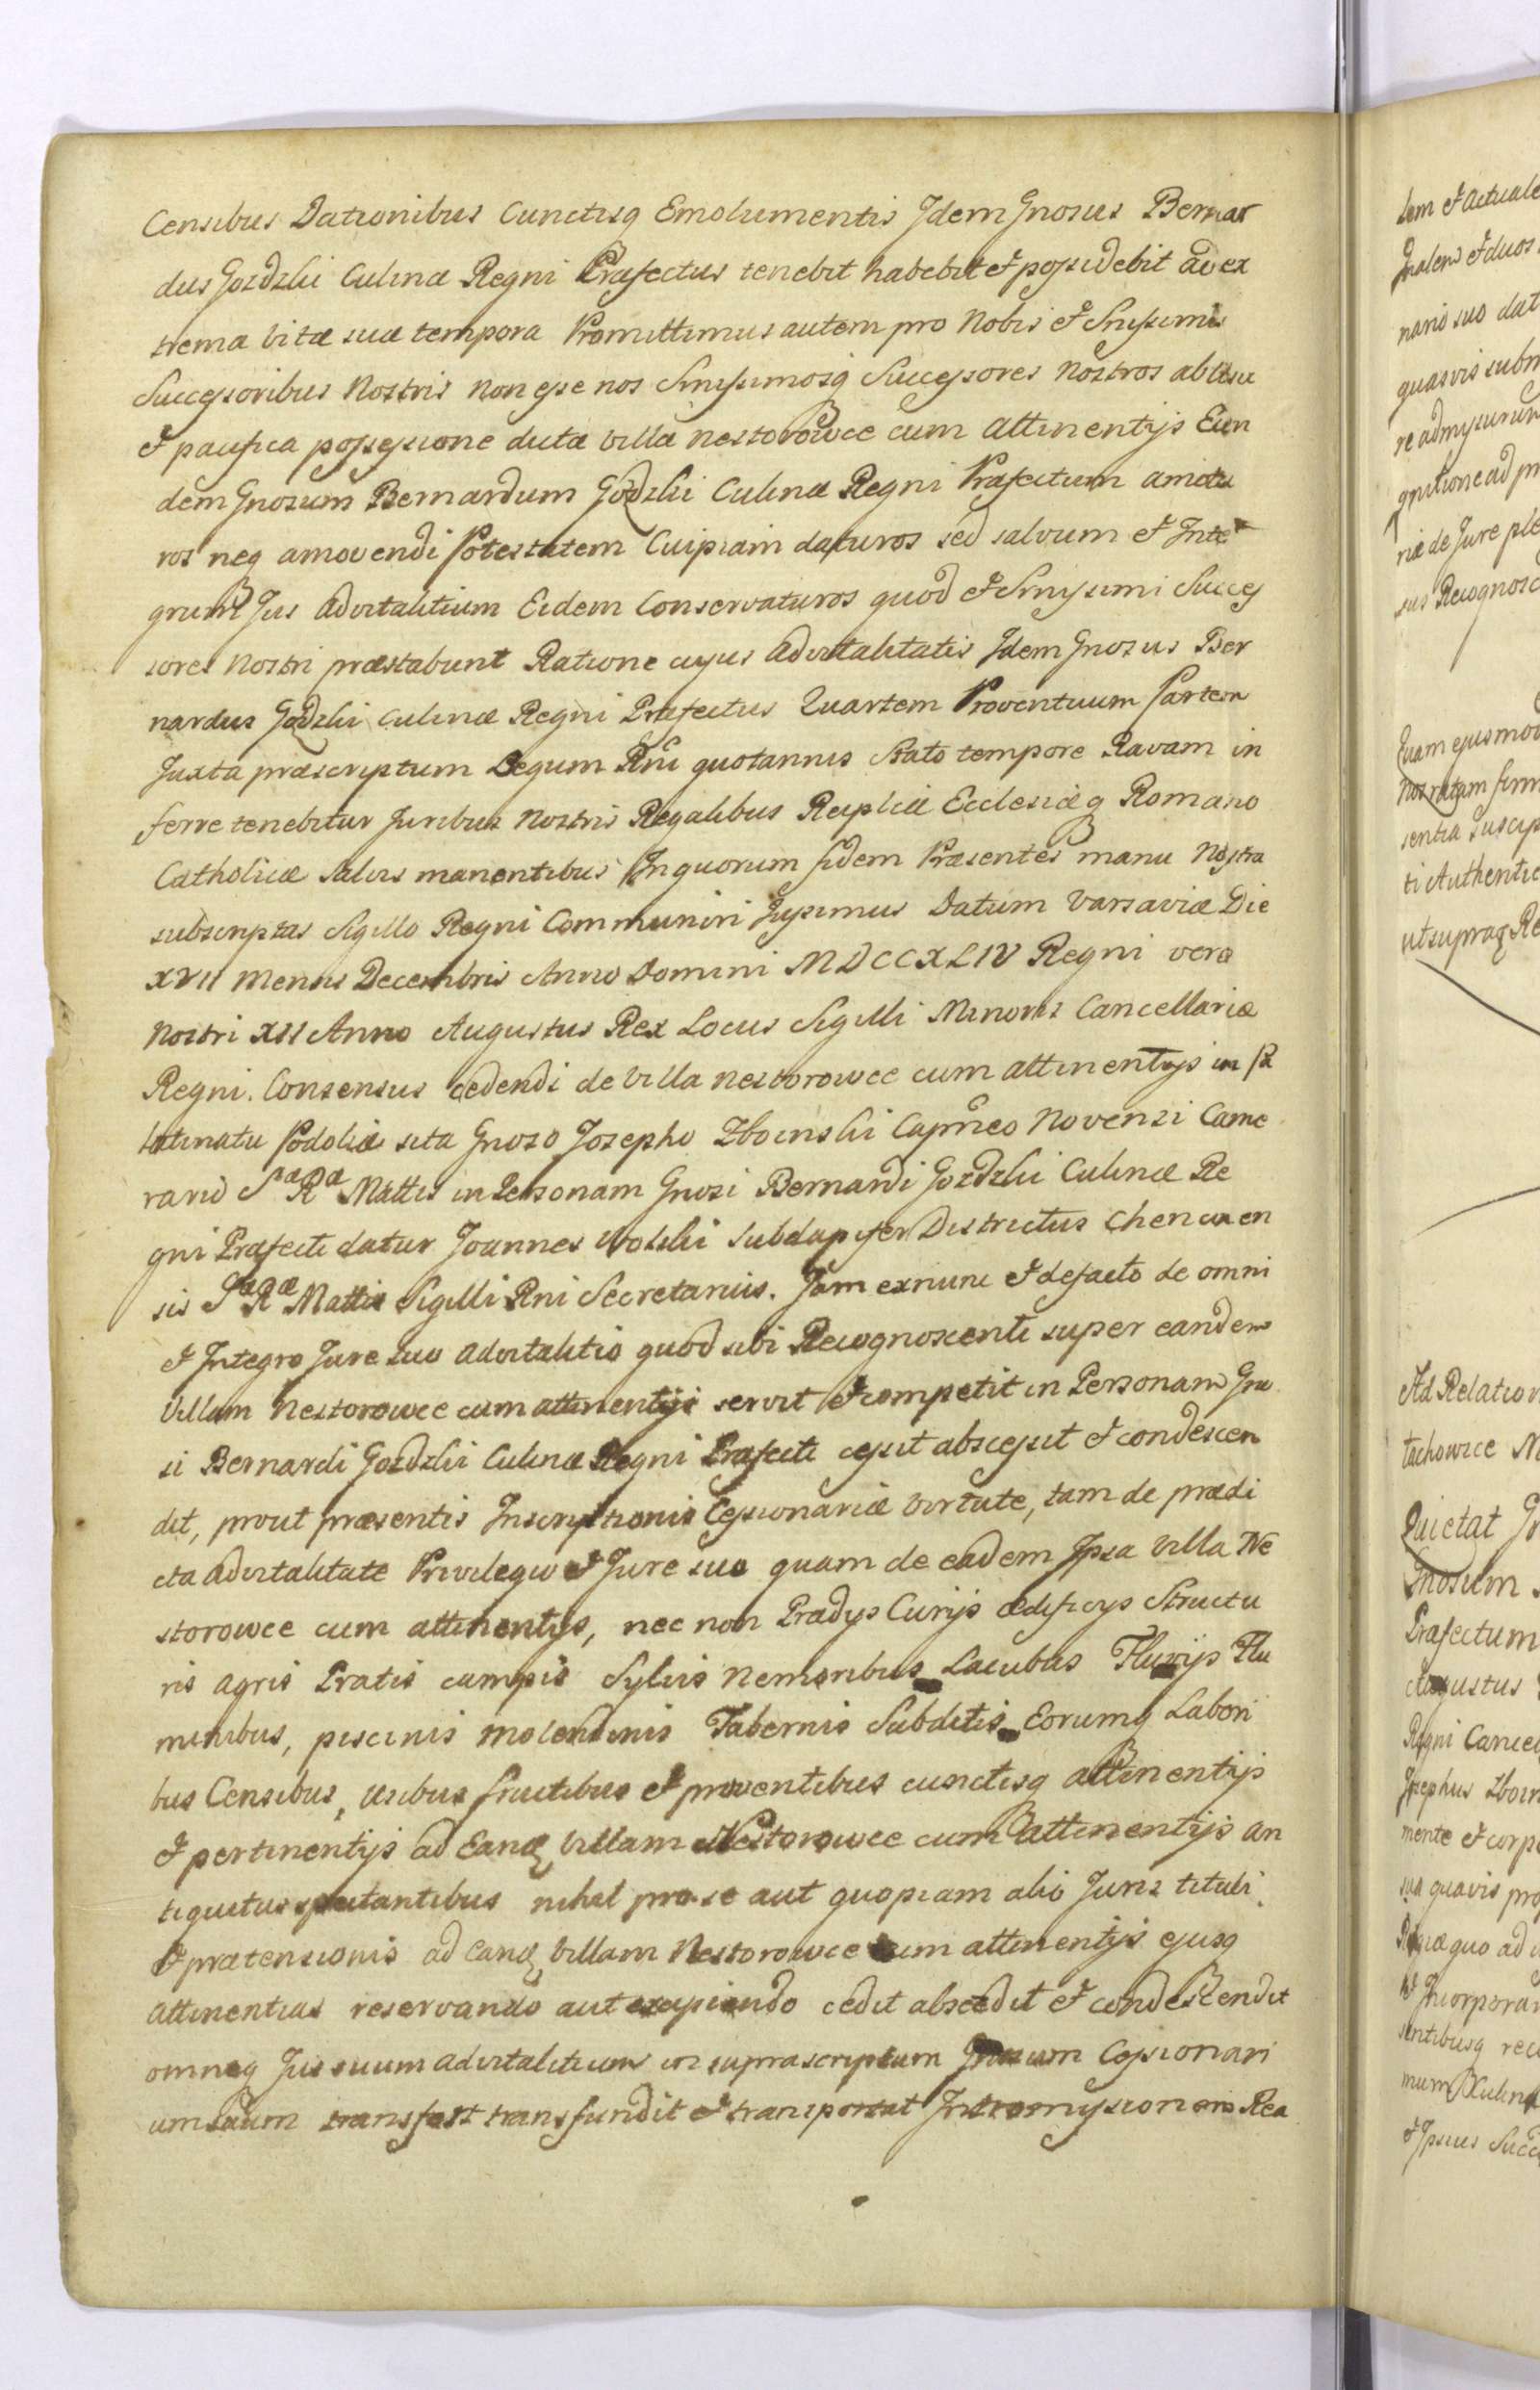 Censibus Dationibus Cunctisq Emolumentis Jdem Gnosus Bernar
dus Gozdzki Culinæ Regni Præfectus tenebit habebit et possidebit ad ex
trema vitæ suæ tempora Promittimus autem pro Nobis et Srnissimis
Successoribus Nostris non esse nos Srnissimosq Successores Nostros ab usu
et pacifica possessione dictæ villæ Nestorowce cum attinentijs Eun
dem Gnosum Bernardum Gozdzki Culinæ Regni Præfectum amotu
ros neq amovendi Potestatem Cuipiam daturos sed salvum et Inte
grum Jus advitalitium Eidem Conservaturos quod et Srnissimi Succes
sores Nostri præstabunt Ratione cujus advitalitatis Jdem Gnosus Ber
nardus Gozdzki Culinæ Regni Præfectus Quartam Proventuum Partem
Juxta præscriptum Legum Rni quotannis Stato tempore Ravam in
ferre tenebitur Juribus Nostris Regalibus Reiplicæ Ecclesiæq Romano
Catholicæ salvis manentibus In quorum fidem Præsentes manu Nostra
subscriptas Sigillo Regni Communiri Jussimus Datum Varsaviæ Die
XVII Mensis Decembris Anno Domini MDCCXLIV Regni vero
Nostri XII Anno Augustus Rex Locus Sigilli Minoris Cancellariæ
Regni. Consensus cedendi de villa Nestorowce cum attinentijs in Pa
latinatu Podoliæ sita Gnoso Josepho Zboinski Capneo Novensi Came
rario Sæ Ræ Mattis in Personam Gnosi Bernardi Gozdzki Culinæ Re
gni Præfecti datur Joannes Wolski Subdapifer Districtus Chencinen
sis Sæ Ræ Mattis Sigilli Rni Secretarius. Jam ex nunc et defacto de omni
et Integro Jure suo advitalitio quod sibi Recognoscenti super eandem
Villam Nestorowce cum attinentijs servit et competit in Personam Gno
si Bernardi Gozdzki Culinæ Regni Præfecti cessit abscessit et condescen
dit, prout præsentis Inscriptionis Cessionariæ virtute, tam de prædi
cta advitalitate Privilegio et Jure suo quam de eadem Ipsa Villa Ne
storowce cum attinentijs, nec non Prædijs Curijs ædificijs Structu
ris agris Pratis campis Sylvis Nemoribus Lacubus Fluvijs Flu
minibus, piscinis molendinis Tabernis Subditis Eorumq Labori
bus Censibus, usibus fructibus et proventibus cunctisq attinentijs
et pertinentijs ad Eand Villam Nestorowce cum attinentijs an
tiquitus spectantibus nihil pro se aut quopiam alio Juris tituli
et prætensionis ad eand Villam Nestorowce cum attinentijs ejusq
attinentias reservando aut excipiendo cedit abscedit et condescendit
omneq Jus suum advitalitium in suprascriptum Gnosum Cessionari
um suum transfert transfundit et transportat Intromissionem Rea
lem et actuale
nario suo dat
quasvis subm
riæ de Jure ple
sus Recognosc
Nos ratam firm
sentia suscip
ti Authentic
ut supraq Re
Ad Relation
tachowce N
Quietat Gn
Gnosum
Præfectum
Augustus
Regni Cancel
Josephus Zboin
mente et corpo
sua quavis pro
et Incorpora
mum Culinæ
et Ipsius Succ